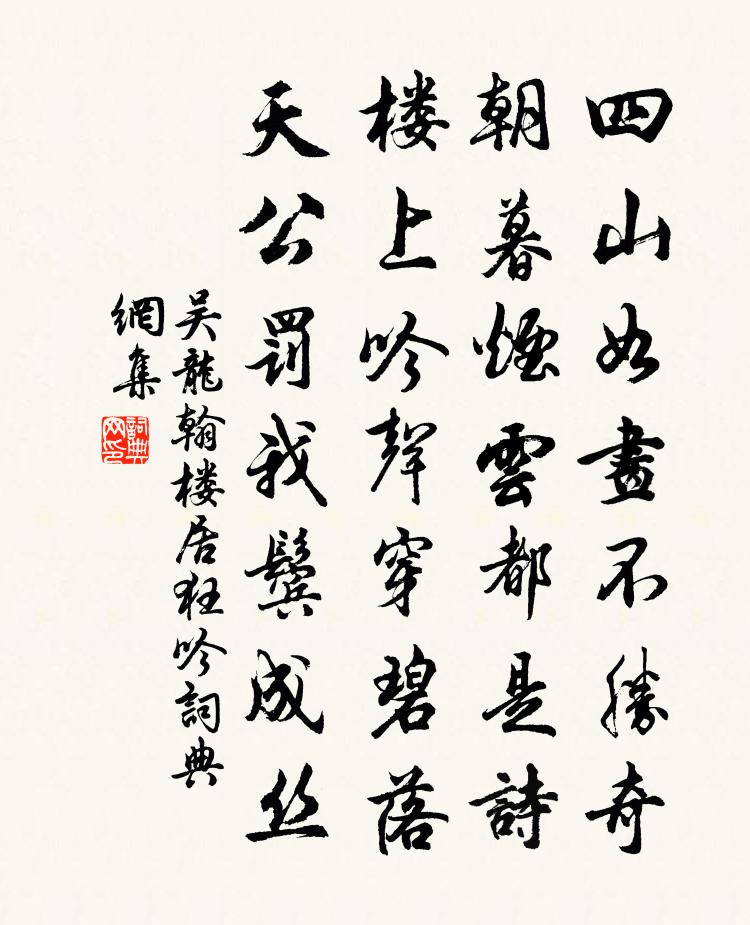 四山如畫不勝奇
朝暮煙雲都是詩
楼上吟聲穿碧落
天公罰我鬓成丝
吴龍翰楼居狂吟詞典
網集
詞典
网印